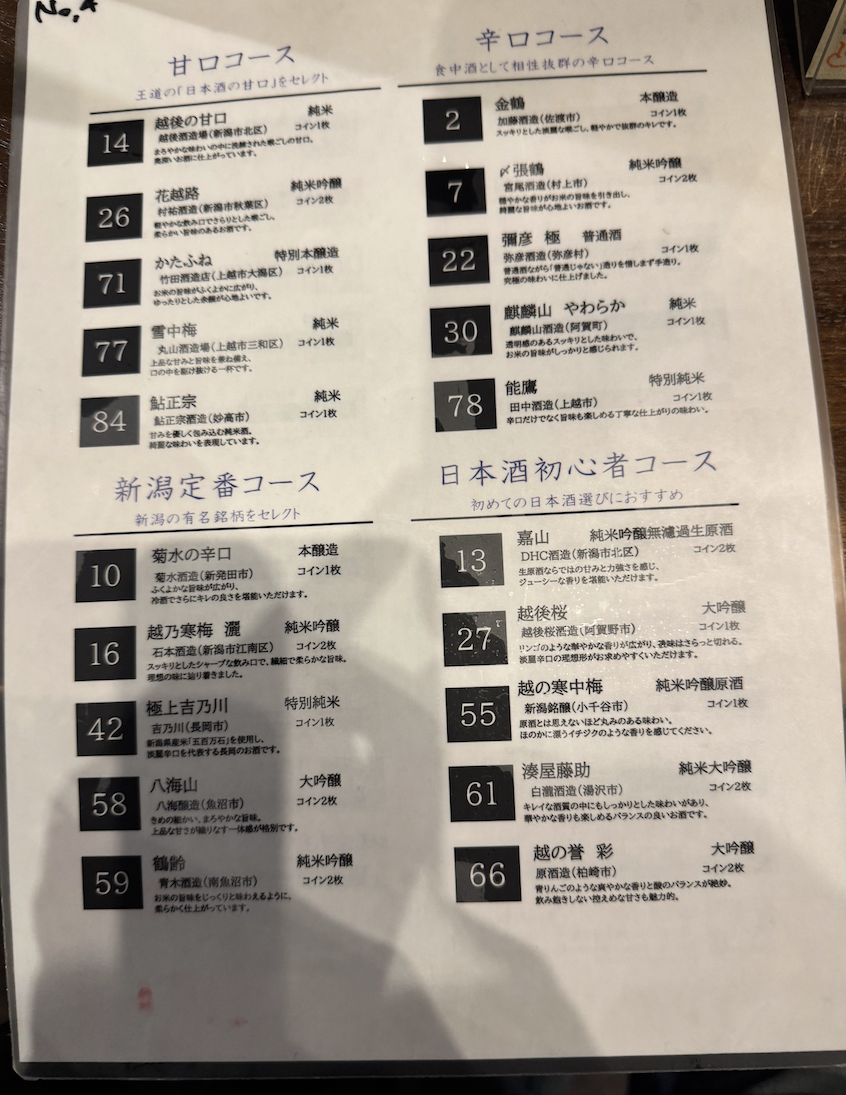 No.
甘口コース
王道の「日本酒の甘口」をセレクト
14
越後の甘口 純米
越後酒造場(新潟市北区) コイン1枚
まろやかな味わいの中に洗練された喉ごしの甘口。
奥深いお酒に仕上がっています。
26
花越路 純米吟醸
村祐酒造(新潟市秋葉区) コイン2枚
軽やかな飲み口でさらりとした喉ごし、
柔らかい旨味のあるお酒です。
71
かたふね 特別本醸造
竹田酒造店(上越市大潟区) コイン1枚
お米の旨味がふくよかに広がり、
ゆったりとした余韻が心地よいです。
77
雪中梅 純米
丸山酒造場(上越市三和区) コイン1枚
上品な甘みと旨味を兼ね備え、
口の中を駆け抜ける一杯です。
84
鮎正宗 純米
鮎正宗酒造(妙高市) コイン1枚
甘みを優しく包み込む純米酒。
綺麗な味わいを表現しています。
辛口コース
食中酒として相性抜群の辛口コース
2
金鶴 本醸造
加藤酒造(佐渡市) コイン1枚
スッキリとした淡麗な喉ごし、軽やかで抜群のキレです。
7
〆張鶴 純米吟醸
宮尾酒造(村上市) コイン2枚
穏やかな香りがお米の旨味を引き出し、
綺麗な旨味が心地よいお酒です。
22
彌彦 極 普通酒
弥彦酒造(弥彦村) コイン1枚
普通酒ながら「普通じゃない」造りを惜しまず手造り。
究極の味わいに仕上げました。
30
麒麟山 やわらか 純米
麒麟山酒造(阿賀町) コイン1枚
透明感のあるスッキリとした味わいで、
お米の旨味がしっかりと感じられます。
78
能鷹 特別純米
田中酒造(上越市) コイン1枚
辛口だけでなく旨味も楽しめる丁寧な仕上がりの味わい。
新潟定番コース
新潟の有名銘柄をセレクト
10
菊水の辛口 本醸造
菊水酒造(新発田市) コイン1枚
ふくよかな旨味が広がり、
冷酒でさらにキレの良さを堪能いただけます。
16
越乃寒梅 灑 純米吟醸
石本酒造(新潟市江南区) コイン2枚
スッキリとしたシャープな飲み口で、繊細で柔らかな旨味。
理想の味に辿り着きました。
42
極上吉乃川 特別純米
吉乃川(長岡市) コイン1枚
新潟県産米「五百万石」を使用し、
淡麗辛口を代表する長岡のお酒です。
58
八海山 大吟醸
八海醸造(魚沼市) コイン2枚
きめの細かい、まろやかな旨味。
上品な甘さが織りなす一体感が格別です。
59
鶴齢 純米吟醸
青木酒造(南魚沼市) コイン2枚
お米の旨味をじっくりと味わえるように、
柔らかく仕上がっています。
日本酒初心者コース
初めての日本酒選びにおすすめ
13
嘉山 純米吟醸無濾過生原酒
DHC酒造(新潟市北区) コイン2枚
生原酒ならではの甘みと力強さを感じ、
ジューシーな香りを堪能いただけます。
27
越後桜 大吟醸
越後桜酒造(阿賀野市) コイン1枚
リンゴのような華やかな香りが広がり、後味はさらっと切れる。
淡麗辛口の理想形がお求めやすくいただけます。
55
越の寒中梅 純米吟醸原酒
新潟銘醸(小千谷市) コイン1枚
原酒とは思えないほど丸みのある味わい。
ほのかに漂うイチジクのような香りを感じてください。
61
湊屋藤助 純米大吟醸
白瀧酒造(湯沢市) コイン2枚
キレイな酒質の中にもしっかりとした味わいがあり、
華やかな香りも楽しめるバランスの良いお酒です。
66
越の誉 彩 大吟醸
原酒造(柏崎市) コイン2枚
青りんごのような爽やかな香りと酸のバランスが絶妙。
飲み飽きしない控えめな甘さも魅力的。